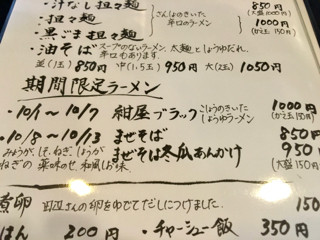 ・汁なし担々麺 850円
(大盛200円)
・担々麺 さんしょのきいた
・黒ごま担々麺 辛口のラーメン 1000円
(かえ玉150円)
・油そば スープのないラーメン。太麺としょうゆだれ。
辛口もあります。
並(1玉) 850円 中(1.5玉) 950円 大(2玉) 1050円
期間限定ラーメン
・10/1〜10/7 紺屋ブラック こしょうのきいた しょうゆラーメン 1000円
(かえ玉150円)
・10/8〜10/13 まぜそば 850円
みょうが、しそ、ねぎ、しょうが まぜそば冬瓜あんかけ 950円
ねぎの薬味のせ 和風お味 (大盛150円)
煮卵 田辺さんの卵をゆでてだしにつけました。 150
はん 200円 ・チャーシュー飯 350円